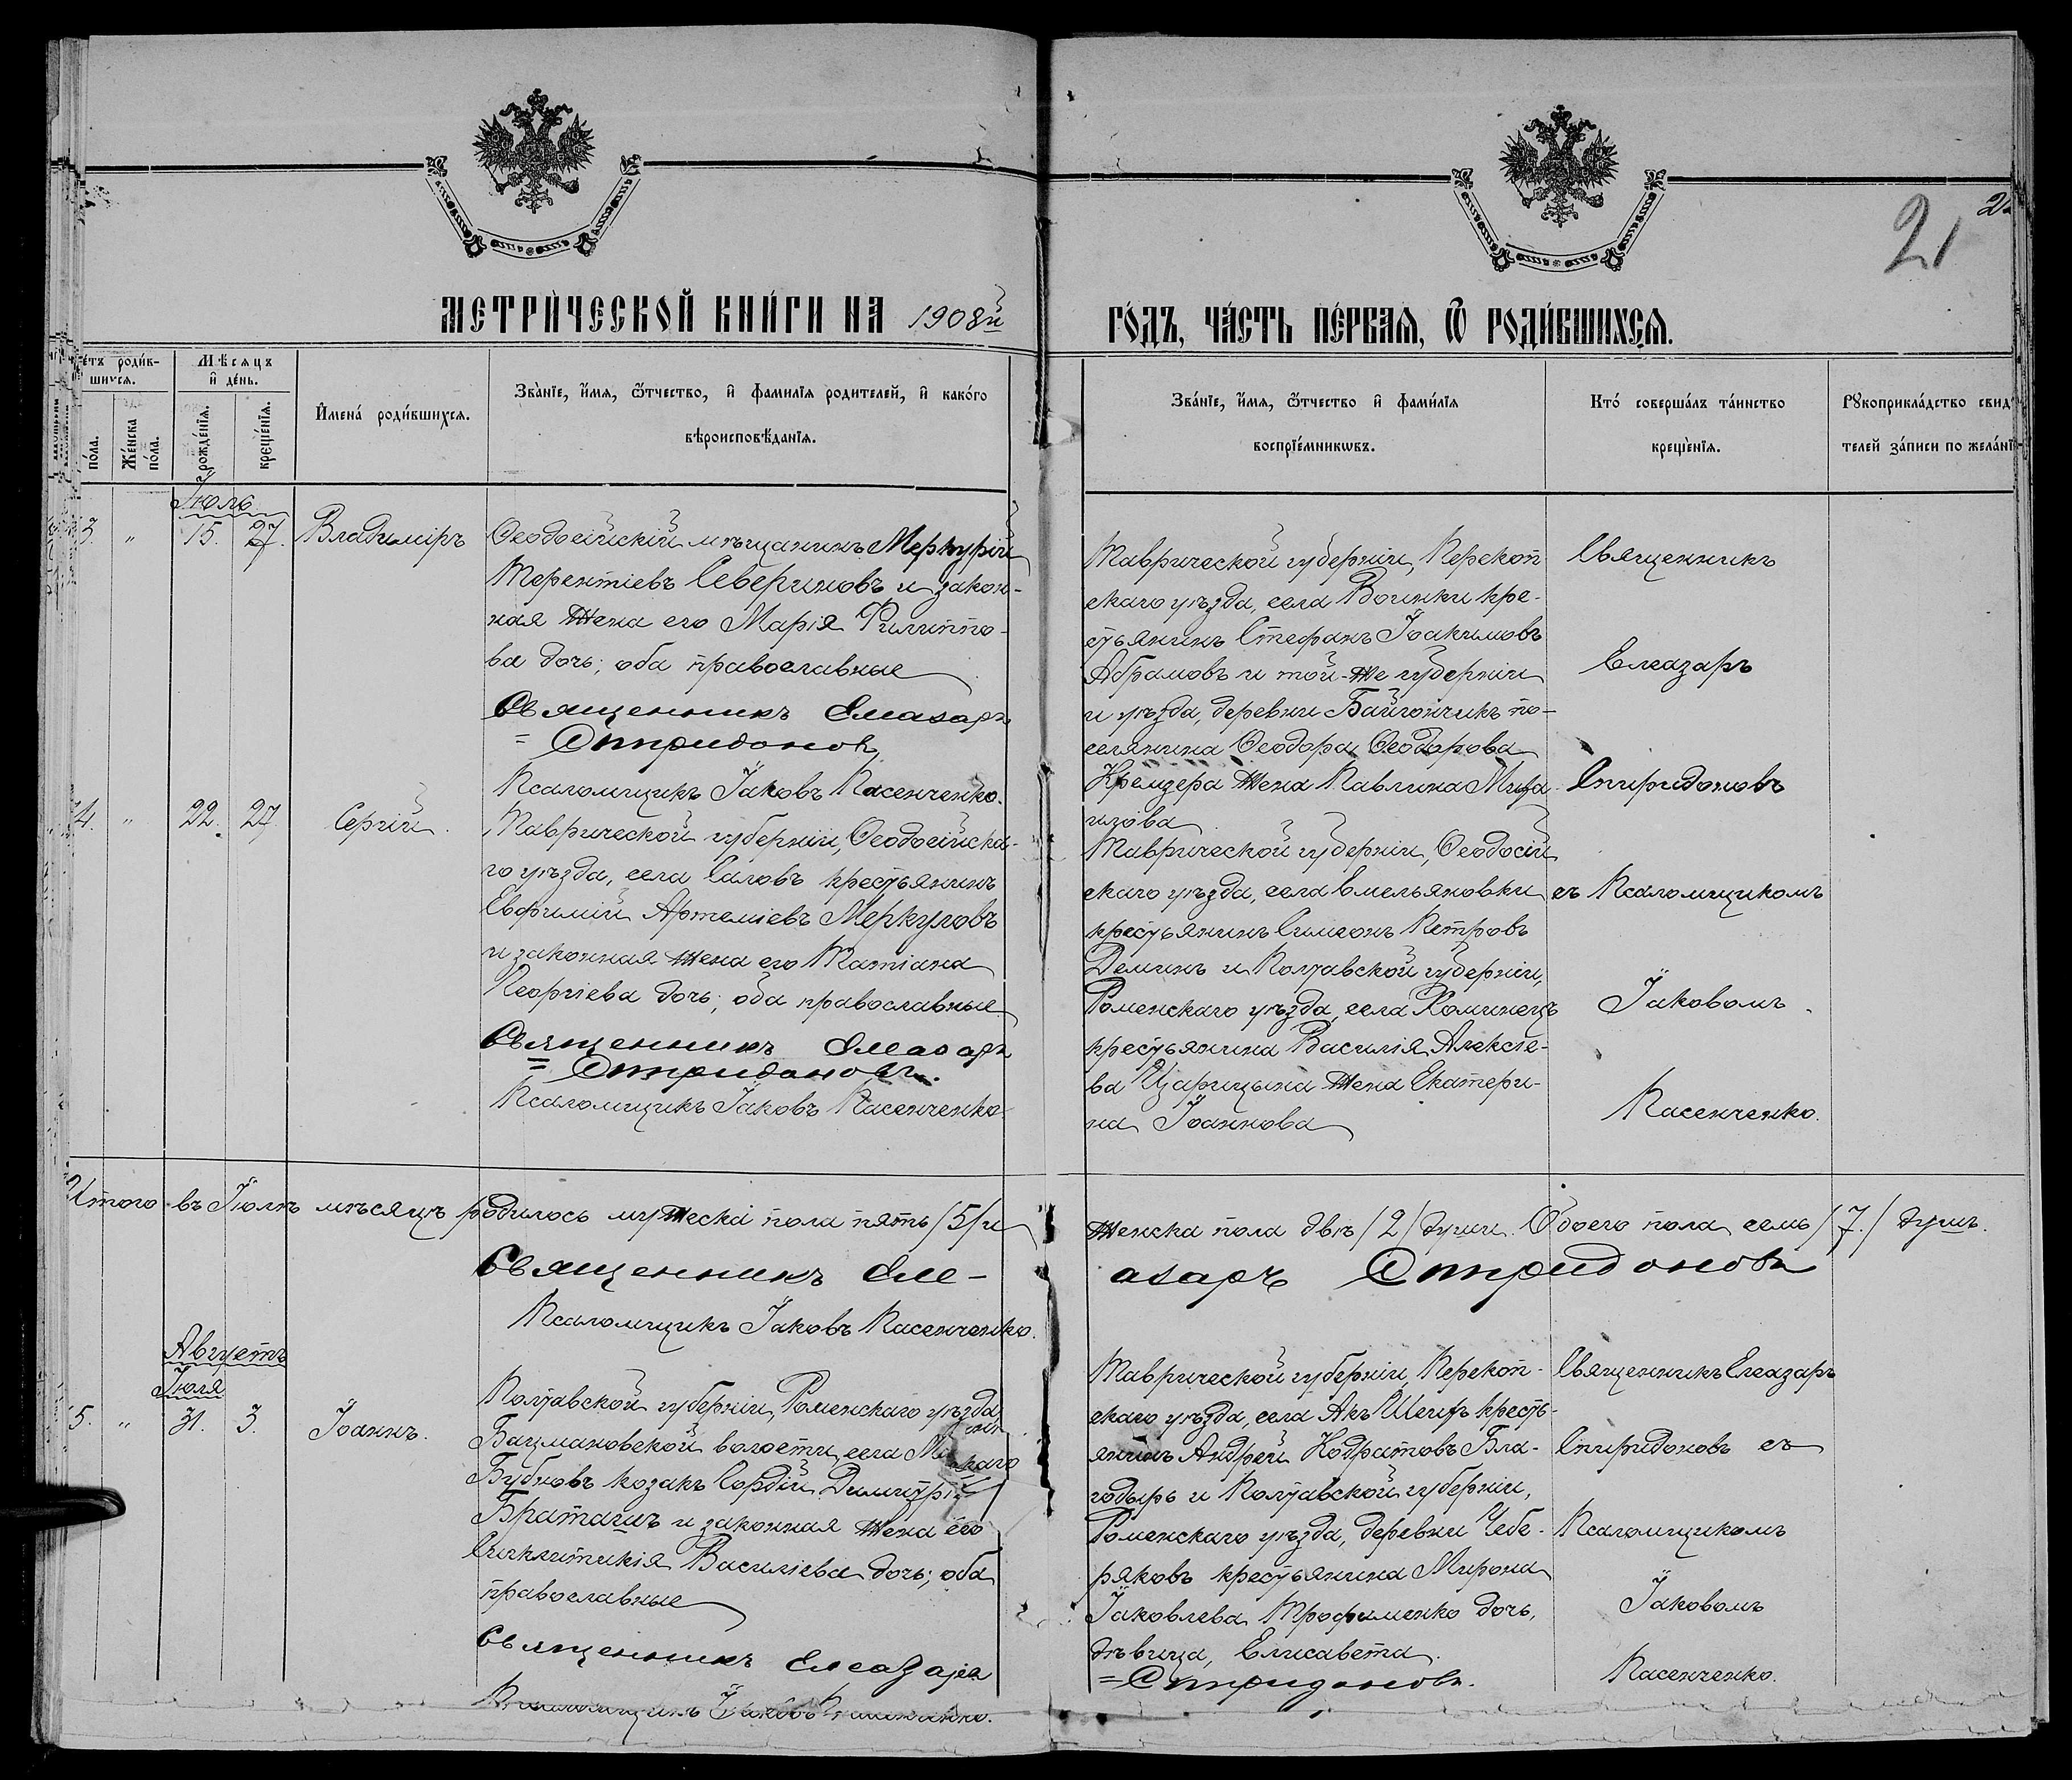 21
МЕТРИЧЕСКОЙ КНИГИ НА 1908й
ГОДЪ, ЧАСТЬ ПЕРВАЯ, Ѿ РОДИВШИХСЯ.
родив-
шихся.
Мѣсяцъ
и день.
пола.
Женска пола.
рожденїя.
крещенїя.
Имена родившихся.
Званїе, имя, ѿтчество, и фамилїя родителей, и какого
вѣроисповѣданїя.
Званїе, имя, ѿтчество и фамилїя
воспрїемникѡвъ.
Кто совершалъ таинство
крещенїя.
Рꙋкоприкладство свид
телей записи по желанї
Іюль
3. " 15. 27. Владиміръ
Ѳеодосійскій мѣщанинъ Меркурій
Терентіевъ Севериновъ и закон-
ная жена его Марія Филиппо-
ва дочь; оба православные
Священникъ Елеазаръ
= Спиридоновъ
Псаломщикъ Іаковъ Пасенченко.
Таврической губерніи, Перекоп
скаго уѣзда, села Воинки кре-
стьянинъ Стефанъ Іоакимовъ
Абрамовъ и той-же губерніи
и уѣзда, деревни Байгончикъ по-
селянина Ѳеодора Ѳеодорова
Кремзера жена Павлина
Священникъ
Елеазаръ
Спиридоновъ
съ Псаломщикомъ
Іаковомъ
Пасенченко.
4. " 22. 27. Сергій.
Таврической губерніи, Ѳеодосійска-
го уѣзда, села Саловъ крестьянинъ
Евфимій Артеміевъ Меркуловъ
и законная жена его Татіана
Георгіева дочь; оба православные
Священникъ Елеазаръ
= Спиридоновъ.
Псаломщикъ Іаковъ Пасенченко
Таврической губерніи, Ѳеодосій
скаго уѣзда, села Емельяновки
крестьянинъ Симеонъ Петровъ
Деминъ и Полтавской губерніи,
Роменскаго уѣзда, села Хоминецъ
крестьянина Василія Алексіе-
ва Царицына жена Екатери-
на Іоаннова
Итого въ Іюлѣ мѣсяцѣ родилось мужеска пола пять /5/ и
женска пола двѣ /2/ души. Обоего пола семь /7./ душъ.
Священникъ Еле-
азаръ Спиридоновъ
Псаломщикъ Іаковъ Пасенченко.
Августъ
Іюля
5. " 31. 3. Іоаннъ.
Полтавской губерніи, Роменскаго уѣзда,
Бацмановской волости, села
Бубновъ козакъ Сордій
Браташъ и законная жена его
Синклитикія Василіева дочь; оба
православные
Священникъ Елеазаръ
Таврической губерніи, Перекоп-
скаго уѣзда, села Акъ Шеихъ кресть-
янинъ Андрей Кодратовъ Бла-
годыръ и Полтавской губерніи,
Роменскаго уѣзда, деревни Чебе-
ряковъ крестьянина Мирона
Іаковлева Трофименко дочь,
дѣвица, Елисавета.
= Спиридоновъ.
Священникъ Елеазаръ
Спиридоновъ съ
Псаломщикомъ
Іаковомъ
Пасенченко.